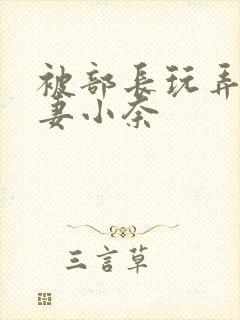 被部長玩弄
妻小奈
三言草